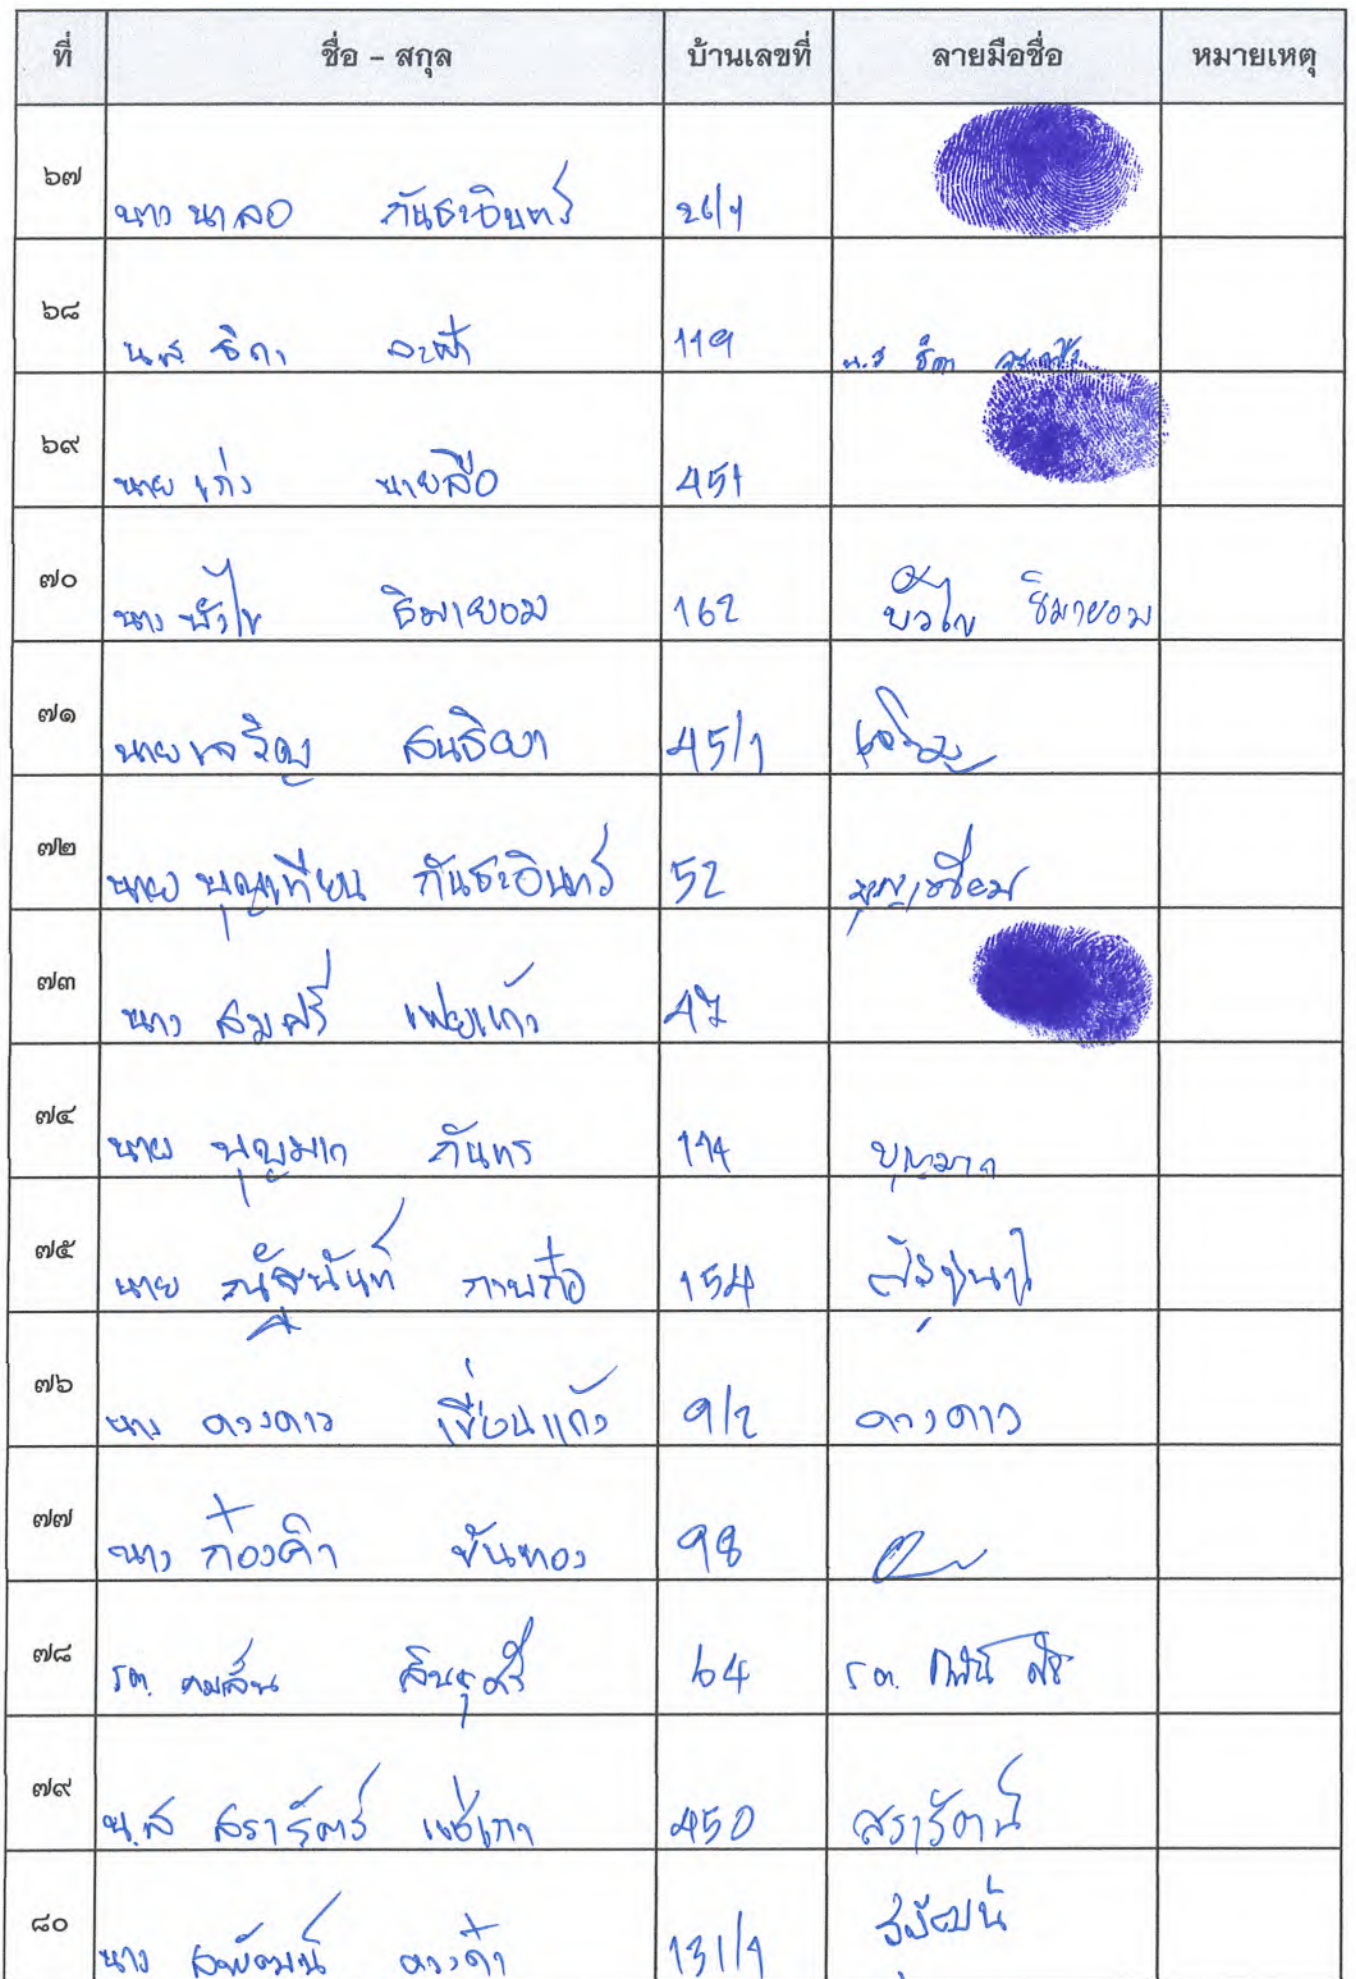 ที่ ชื่อ - สกุล บ้านเลขที่ ลายมือชื่อ หมายเหตุ
๖๗ นาง นาลอ กันธะอินทร์ 26/1
๖๘ น.ส. ธิดา 119 น.ส ธิดา
๖๙ นาย เก่ง นายลือ 451
๗๐ นาง บัวไข ธิมายอม 162 บัวไข ธิมายอม
๗๑ นาย เจริญ สนธิยา 45/1 เจริญ
๗๒ นาย บุญเทียน กันธะอินทร์ 52
๗๓ นาง สมศรี เฟยแก้ว 47
๗๔ นาย บุญมาก กันทร 114 บุญมาก
๗๕ นาย 154
๗๖ นาง ดวงดาว เขื่อนแก้ว 9/2 ดวงดาว
๗๗ นาง ก๋องคำ ขันทอง 98
๗๘ รต. คมสัน สินธุศรี 64 รต.
๗๙ น.ส สรารัตน์ 450 สรารัตน์
๘๐ นาง ดวงคำ 131/1